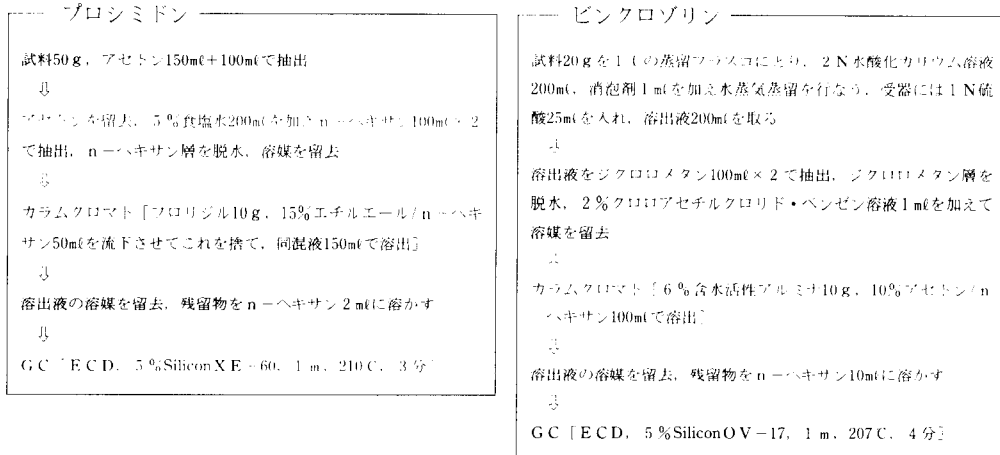 プロシミドン
試料50g,アセトン150mℓ+100mℓで抽出
⇩
アセトンを留去,5%食塩水200mℓを加えn-ヘキサン100mℓ×2
で抽出,n-ヘキサン層を脱水,溶媒を留去
⇩
カラムクロマト[フロリジル10g,15%エチルエール/n-ヘキ
サン50mℓを流下させてこれを捨て,同混液150mℓで溶出]
⇩
溶出液の溶媒を留去,残留物をn-ヘキサン2mℓに溶かす
⇩
GC[ECD, 5%SiliconXE-60, 1m, 210C, 3分]
ビンクロゾリン
試料20gを1ℓの蒸留フラスコにとり,2N水酸化カリウム溶液
200mℓ,消泡剤1mℓを加え水蒸気蒸留を行なう,受器には1N硫
酸25mℓを入れ,溶出液200mℓを取る
⇩
溶出液をジクロロメタン100mℓ×2で抽出,ジクロロメタン層を
脱水,2%クロロアセチルクロリド・ベンゼン溶液1mℓを加えて
溶媒を留去
⇩
カラムクロマト[6%含水活性アルミナ10g,10%アセトン/n
-ヘキサン100mℓで溶出]
⇩
溶出液の溶媒を留去,残留物をn-ヘキサン10mℓに溶かす
⇩
GC[ECD, 5%SiliconOV-17, 1m, 207C, 4分]